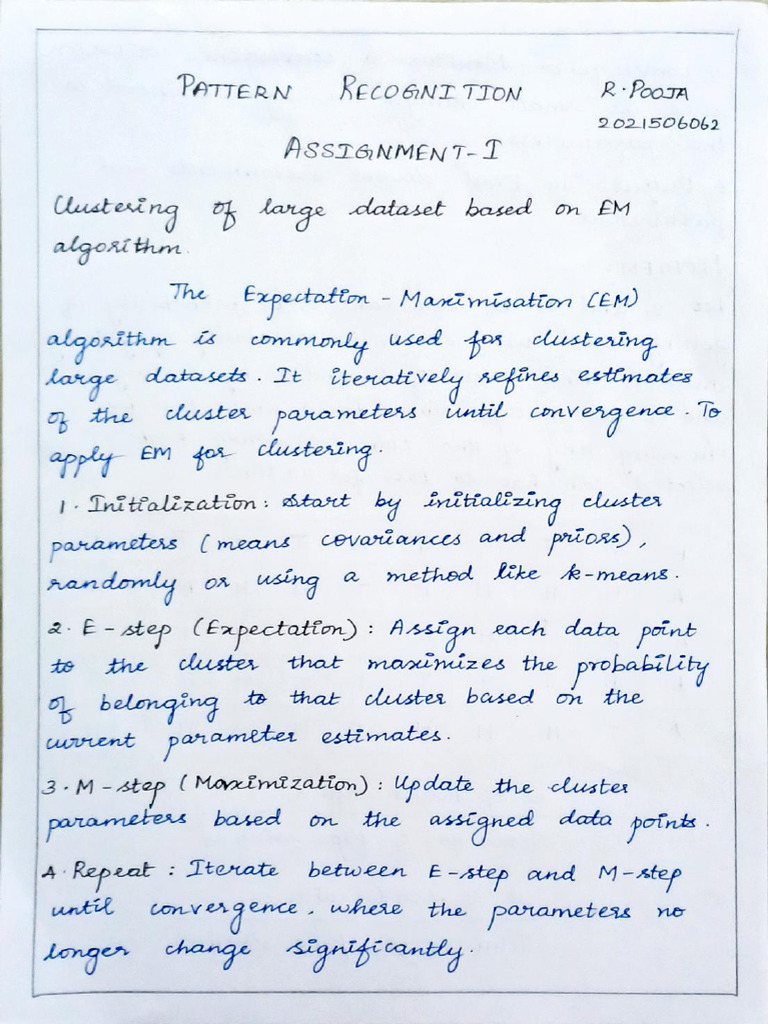 PATTERN RECOGNITION R. POOJA
2021506062
ASSIGNMENT-I
Clustering of large dataset based on EM
algorithm.
The Expectation - Maximisation (EM)
algorithm is commonly used for clustering
large datasets. It iteratively refines estimates
of the cluster parameters until convergence. To
apply EM for clustering.
1. Initialization: Start by initializing cluster
parameters (means covariances and priors),
randomly or using a method like k-means.
2. E-step (Expectation): Assign each data point
to the cluster that maximizes the probability
of belonging to that cluster based on the
current parameter estimates.
3. M-step (Maximization): Update the cluster
parameters based on the assigned data points.
4. Repeat: Iterate between E-step and M-step
until convergence, where the parameters no
longer change significantly.